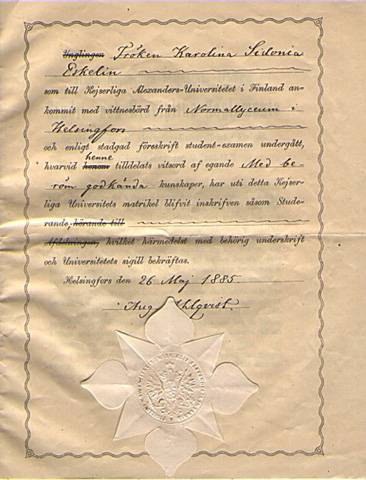 Ynglingen Fröken Karolina Sidonia
Eskelin
som till Kejserliga Alexanders-Universitetet i Finland an-
kommit med vittnesbörd från Normallyceum i
Helsingfors
och enligt stadgad föreskrift student-examen undergått,
henne
hvarvid honom tilldelats vitsord af egande Med be-
röm godkända kunskaper, har uti detta Kejser-
liga Universitets matrikel blifvit inskrifven såsom Stude-
rande, hörande till
Afdelningen, hvilket härmedelst med behörig underskrift
och Universitetets sigill bekräftas.
Helsingfors den 26 Maj 1885
Aug Ahlqvist.